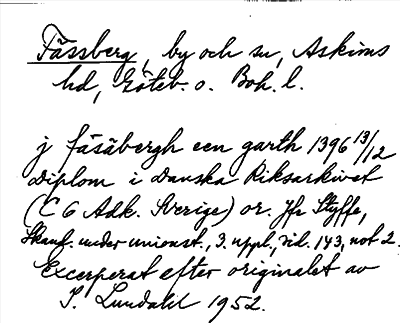 Fässberg, by och sn, Askims
hd, Göteb. o. Boh. l.
j fäsäbergh een garth 1396 13/12
Diplom i Danska Riksarkivet
(C 6 Adk. Sverige) or. Jfr Styffe,
Skand. under unionst., 3. uppl., sid. 143, not 2.
Excerperat efter originalet av
S. Lundahl 1952.